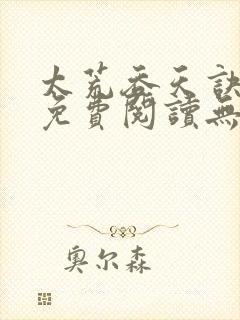 太荒吞天訣
免費閱讀無
奧尔森